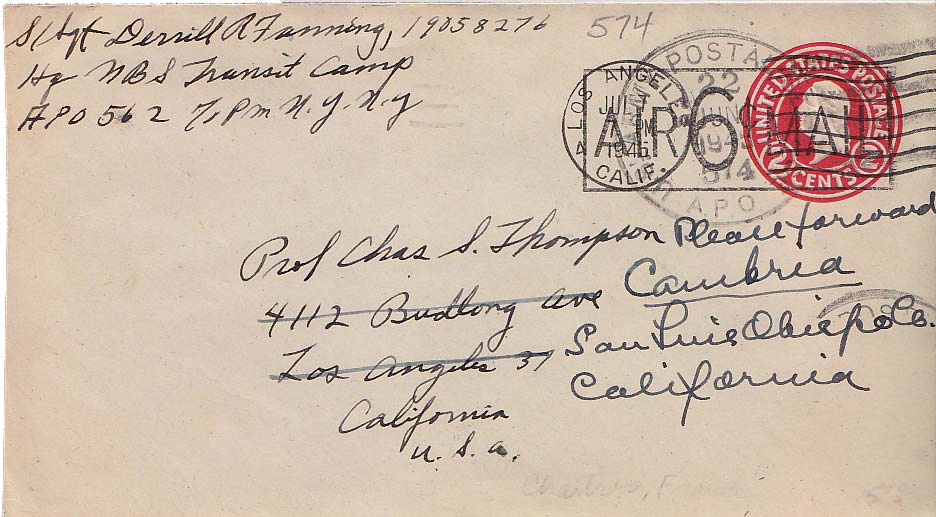 S/Sgt Derrill R Fanning, 19058276
Hq NBS Transit Camp
APO 562 % Pm N.Y. N.Y
574
LOS ANGELES
CALIF.
4
JUL
PM
1945
AIR 6 MAIL
POSTAL
22
JUN
1945
574
U.S. A.P.O.
UNITED STATES POSTAGE
2 CENTS 2
Prof Chas S. Thompson
4112 Budlong Ave
Los Angeles 37
California
U.S.A.
Please forward
Cambria
San Luis Obispo Co.
California
Chartres, France